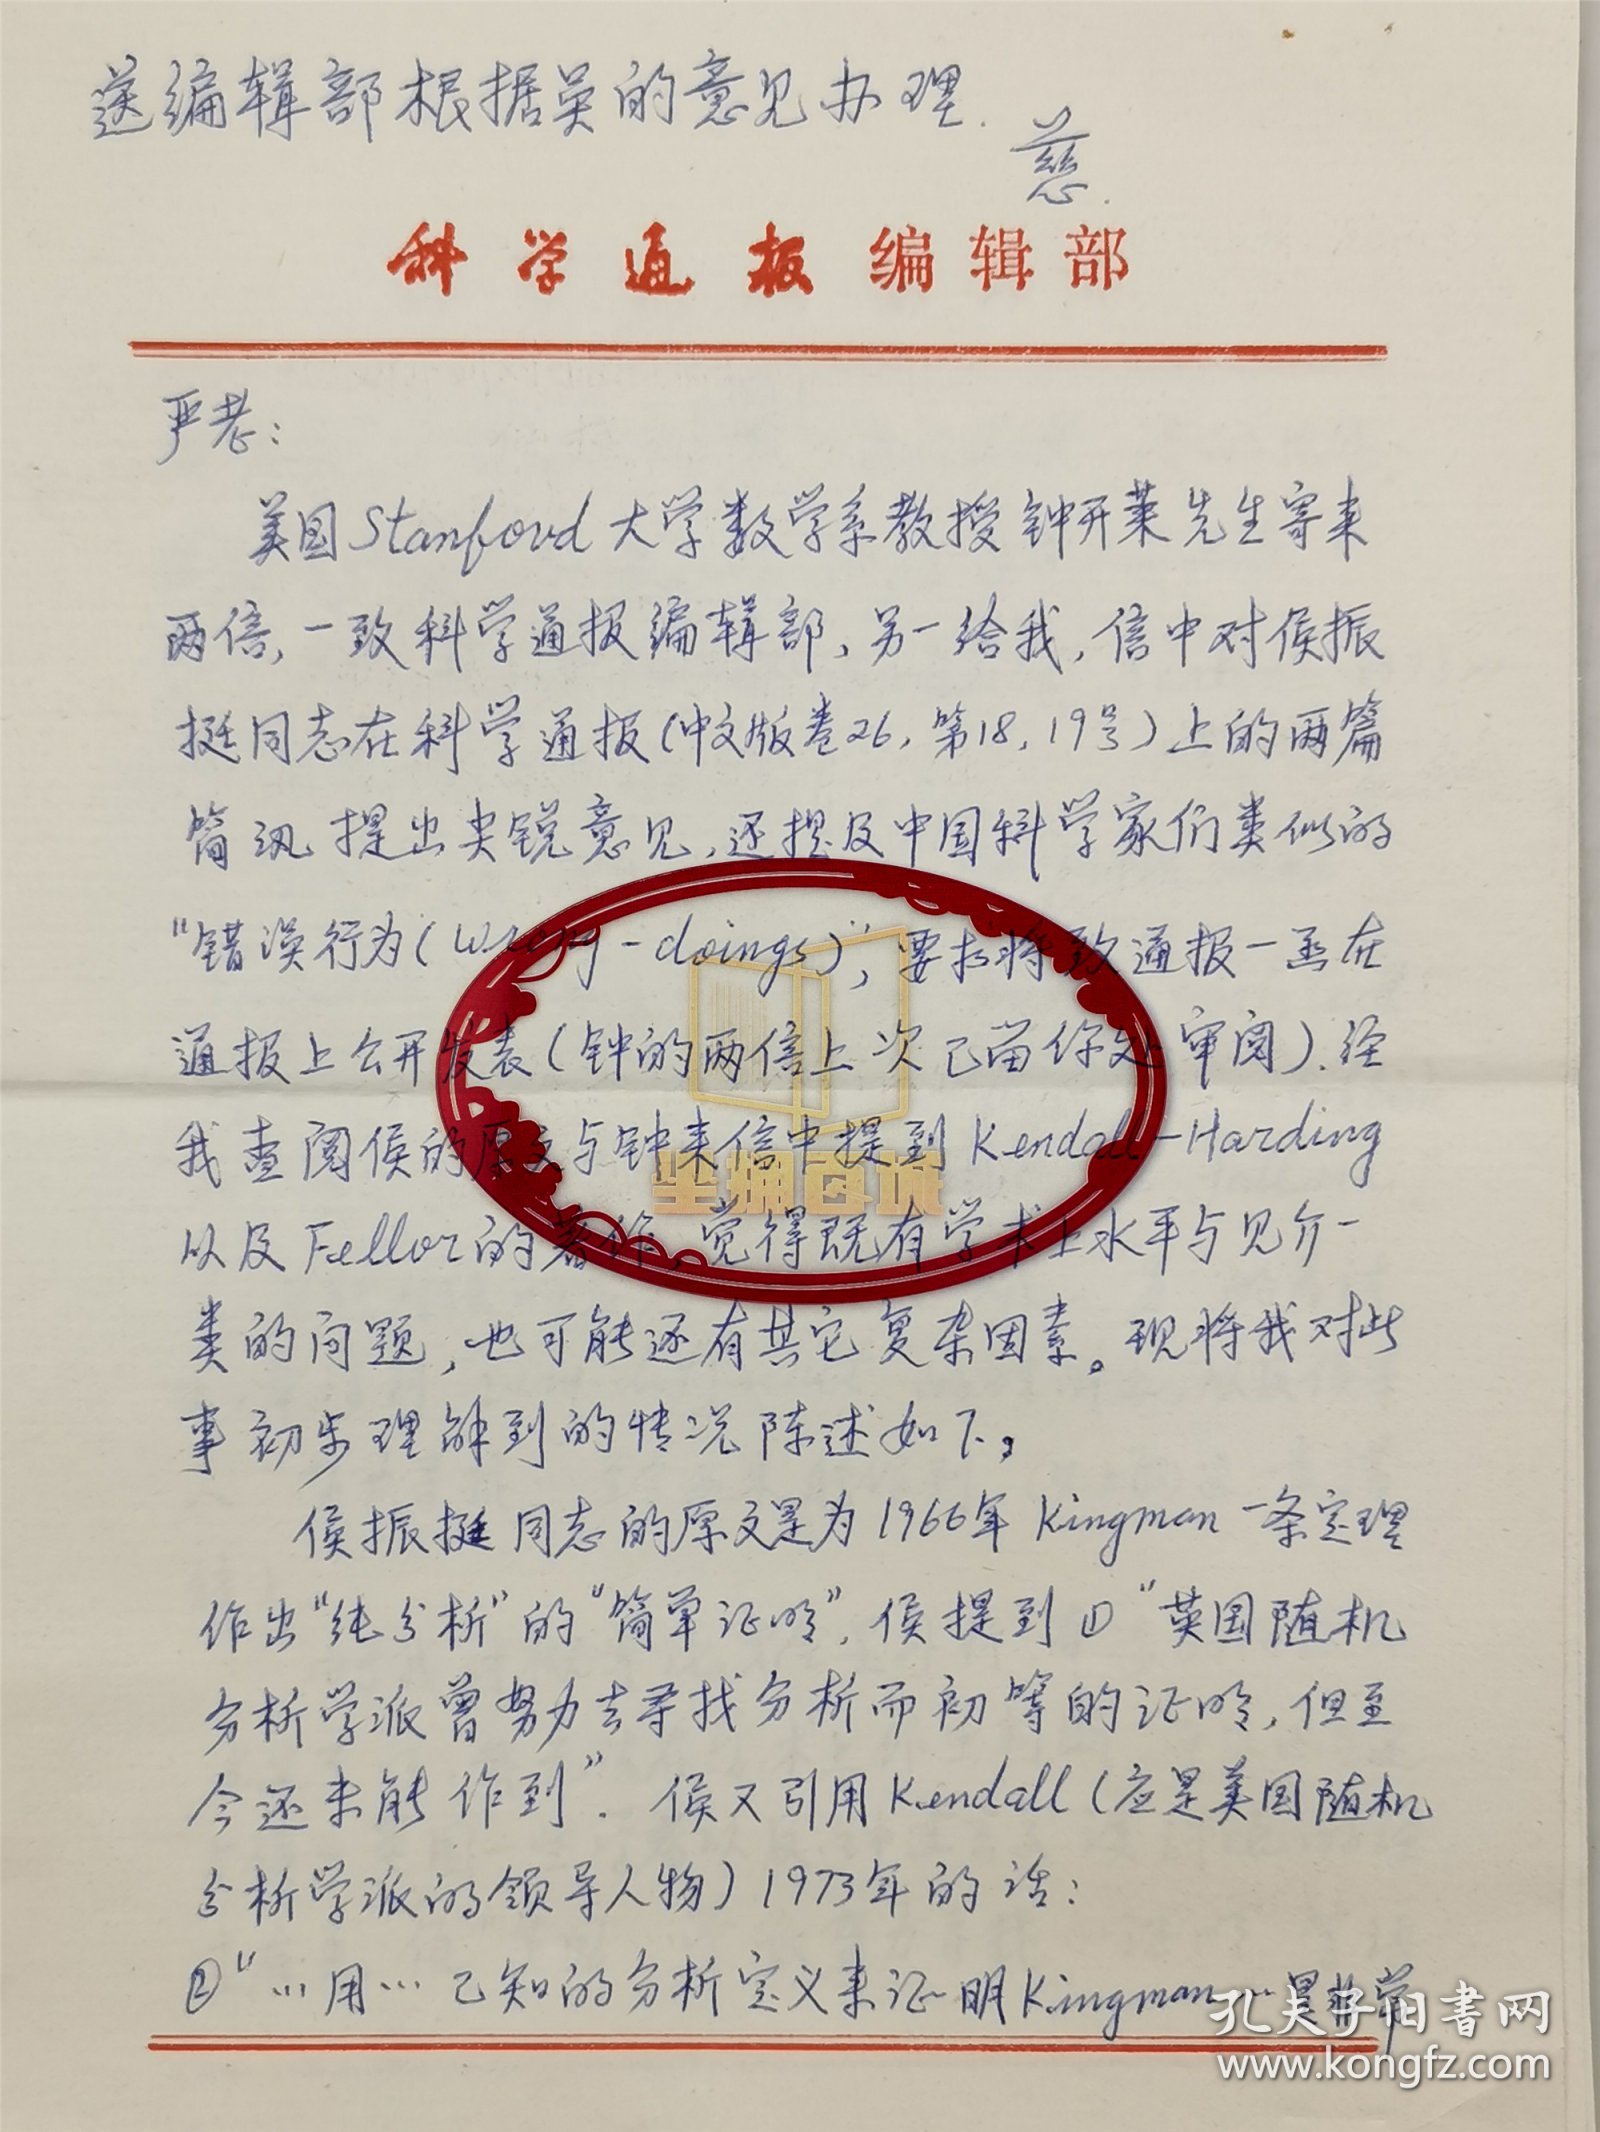 送编辑部根据吴的意见办理.
慈.
科学通报编辑部
严老:
美国Stanford大学数学系教授钟开莱先生寄来
两信,一致科学通报编辑部,另一给我,信中对侯振
挺同志在科学通报(中文版卷26,第18,19号)上的两篇
简讯提出尖锐意见,还提及中国科学家们类似的
"错误行为(wrong-doings)",要求将致通报一函在
通报上公开发表(钟的两信上次已留你处审阅).经
我查阅侯的原文与钟来信中提到Kendall-Harding
以及Feller的著作,觉得既有学术上水平与见介一
类的问题,也可能还有其它复杂因素。现将我对此
事初步理解到的情况陈述如下。
侯振挺同志的原文是为1966年Kingman一条定理
作出"纯分析"的"简单证明",侯提到①"英国随机
分析学派曾努力去寻找分析而初等的证明,但至
今还未能作到".侯又引用Kendall(应是英国随机
分析学派的领导人物)1973年的话:
②"…用…已知的分析定义来证明Kingman…是非常
孔夫子旧书网
www.kongfz.com